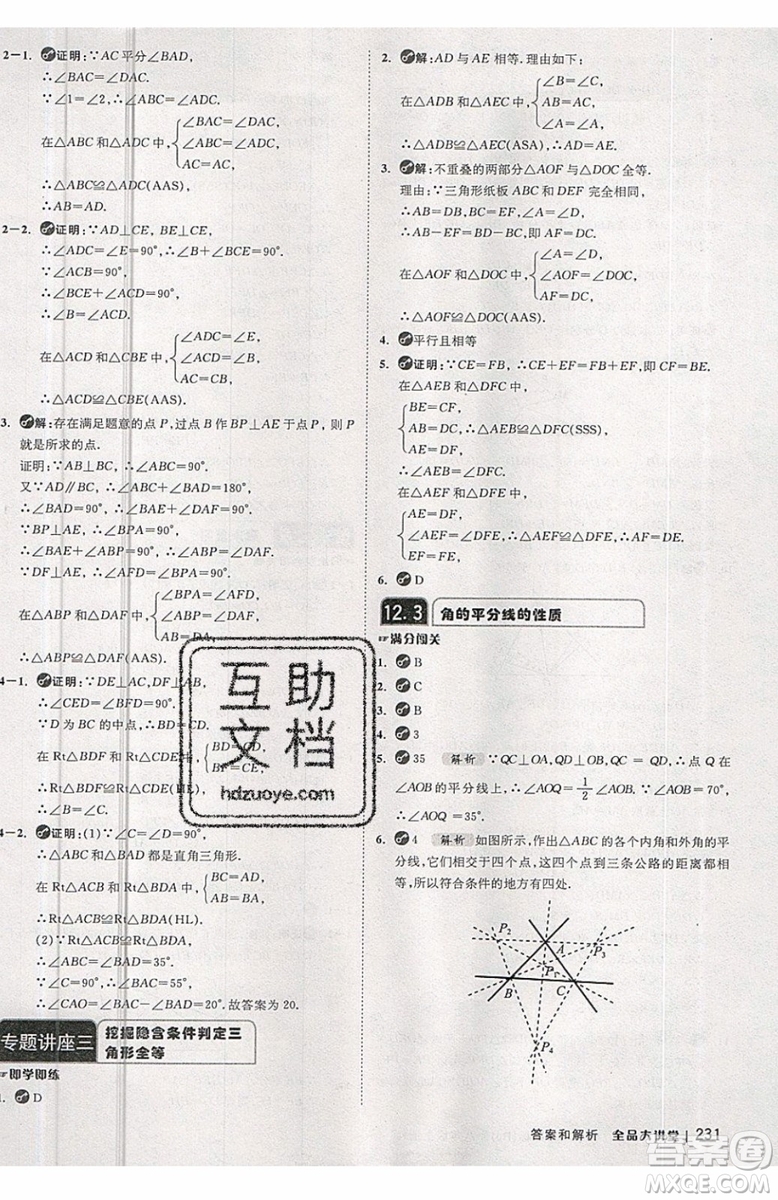 2—1. 证明:∵AC平分∠BAD,
∴∠BAC=∠DAC.
∵∠1=∠2,∴∠ABC=∠ADC.
在△ABC和△ADC中,{∠BAC=∠DAC, ∠ABC=∠ADC, AC=AC,
∴△ABC≌△ADC(AAS),
∴AB=AD.
2—2. 证明:∵AD⊥CE,BE⊥CE,
∴∠ADC=∠E=90°,∴∠B+∠BCE=90°.
∵∠ACB=90°,
∴∠BCE+∠ACD=90°,
∴∠B=∠ACD.
在△ACD和△CBE中,{∠ADC=∠E, ∠ACD=∠B, AC=CB,
∴△ACD≌△CBE(AAS).
3. 解:存在满足题意的点P,过点B作BP⊥AE于点P,则P
就是所求的点.
证明:∵AB⊥BC,∴∠ABC=90°.
又∵AD∥BC,∴∠ABC+∠BAD=180°,
∴∠BAD=90°,∴∠BAP+∠DAF=90°.
∵BP⊥AE,∴∠BPA=90°,
∴∠BAP+∠ABP=90°,∴∠ABP=∠DAF.
∵DF⊥AE,∴∠AFD=90°.
在△ABP和△DAF中,{∠BPA=∠AFD, ∠ABP=∠DAF, AB=DA,
∴△ABP≌△DAF(AAS).
4—1. 证明:∵DE⊥AC,DF⊥AB,
∴∠CED=∠BFD=90°.
∵D为BC的中点,∴BD=CD.
在Rt△BDF和Rt△CDE中,{BD=CD,
∴Rt△BDF≌Rt△CDE(HL),
∴∠B=∠C.
4—2. 证明:(1)∵∠C=∠D=90°,
∴△ACB和△BDA都是直角三角形.
在Rt△ACB和Rt△BDA中,{BC=AD, AB=BA,
∴Rt△ACB≌Rt△BDA(HL).
(2)∵Rt△ACB≌Rt△BDA,
∴∠BAD=∠ABC=35°.
∵∠C=90°,∴∠BAC=55°,
∴∠CAO=∠BAC-∠BAD=20°.故答案为20.
专题讲座三 挖掘隐含条件判定三
角形全等
☞即学即练
1. D
2. 解:AD与AE相等.理由如下:
在△ADB和△AEC中,{∠B=∠C, AB=AC, ∠A=∠A,
∴△ADB≌△AEC(ASA),∴AD=AE.
3. 解:不重叠的两部分△AOF与△DOC全等.
理由:∵三角形纸板ABC和DEF完全相同,
∴AB=DB,BC=BF,∠A=∠D,
∴AB-BF=BD-BC,即AF=DC.
在△AOF和△DOC中,{∠A=∠D, ∠AOF=∠DOC, AF=DC,
∴△AOF≌△DOC(AAS).
4. 平行且相等
5. 证明:∵CE=FB,∴CE+EF=FB+EF,即CF=BE.
在△AEB和△DFC中,
{BE=CF, AB=DC, AE=DF,
∴△AEB≌△DFC(SSS),
∴∠AEB=∠DFC.
在△AEF和△DFE中,
{AE=DF, ∠AEF=∠DFE, EF=FE,
∴△AEF≌△DFE(SAS),∴AF=DE.
6. D
12.3 角的平分线的性质
☞满分闯关
1. B
2. C
3. B
4. 3
5. 35 解析 ∵QC⊥OA,QD⊥OB,QC=QD,∴点Q在
∠AOB的平分线上,∴∠AOQ=1/2∠AOB.∵∠AOB=70°,
∴∠AOQ=35°.
6. 4 解析 如图所示,作出△ABC的各个内角和外角的平
分线,它们相交于四个点,这四个点到三条公路的距离都相
等,所以符合条件的地方有四处.
P₂ A P₃
P₁
B C
P₄
答案和解析 全品大讲堂 231
互助
文档
hdzuoye.com
答案圈
MXQE.COM